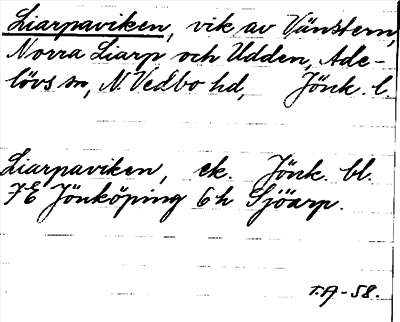 Liarpaviken, vik av Vänstern,
Norra Liarp och Udden, Ade-
lövs sn, N. Vedbo hd, Jönk. l.
Liarpaviken, ek. Jönk. bl.
7E Jönköping 6h Sjöarp.
T.A-58.